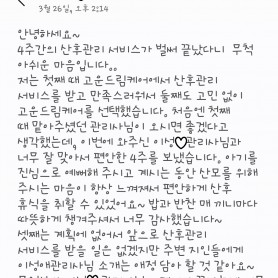 3월 26일, 오후 2:14
안녕하세요~
4주간의 산후관리 서비스가 벌써 끝났다니 무척
아쉬운 마음입니다..
저는 첫째 때 고운드림케어에서 산후관리
서비스를 받고 만족스러워서 둘째도 고민 없이
고운드림케어를 선택했습니다. 처음에 첫째
때 맡아주셨던 관리사님이 오시면 좋겠다고
생각했는데, 이번에 와주신 이성♥관리사님과
너무 잘 맞아서 편안한 4주를 보냈습니다. 아기를
진심으로 예뻐해 주시고 계시는 동안 산모를 위해
주시는 마음이 항상 느껴져서 편안하게 산후
휴식을 취할 수 있었어요~ 밥과 반찬 매 끼니마다
따뜻하게 챙겨주셔서 너무 감사했습니다~
셋째는 계획에 없어서 앞으로 산후관리
서비스를 받을 일은 없겠지만 주변 지인들에게
이성애관리사님 소개는 애정 담아 할 것 같아요~